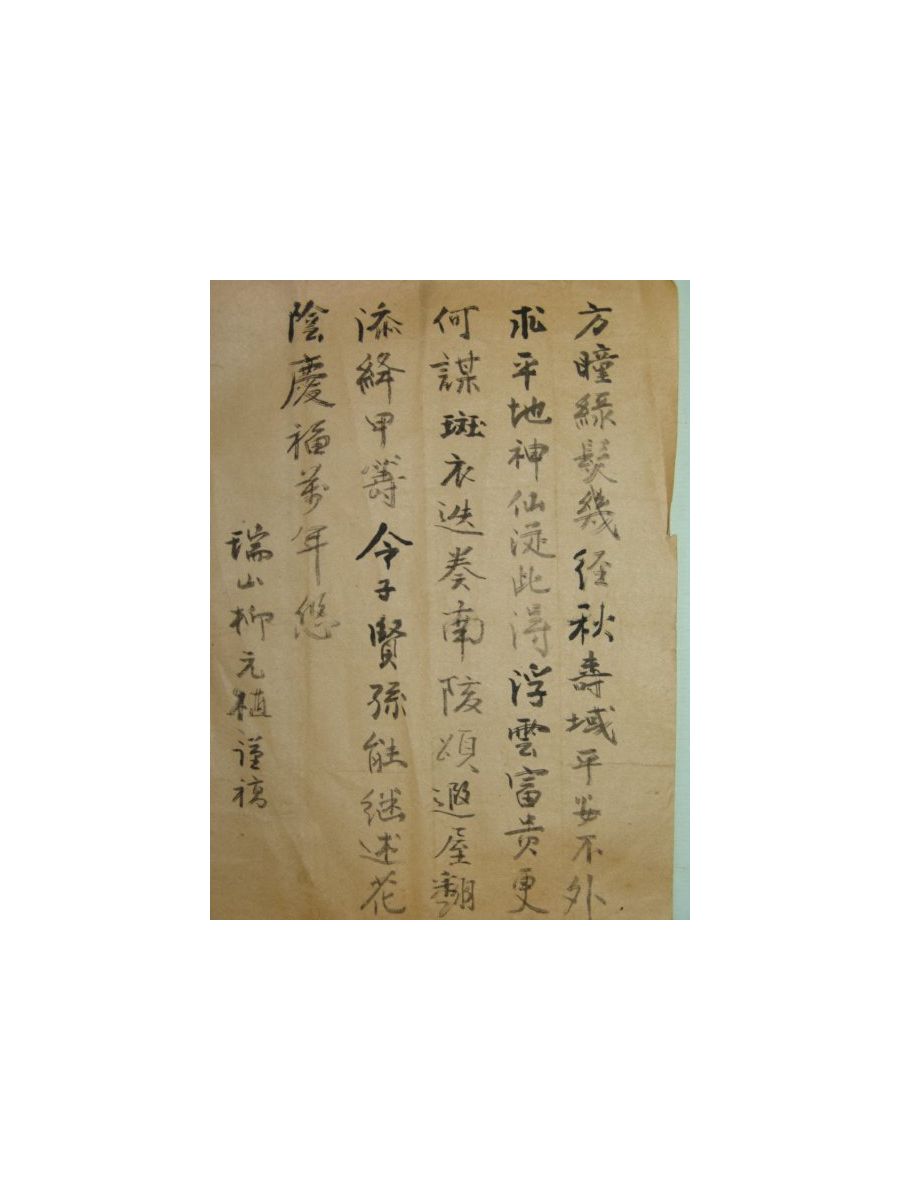 方瞳綠髮幾徑秋壽域平安不外
求平地神仙從此得浮雲富貴更
何謀斑衣迭奏南陔頌遐屋翻
添絳甲籌令子賢孫能継述花
陰慶福萬年悠
瑞山柳元植謹稿